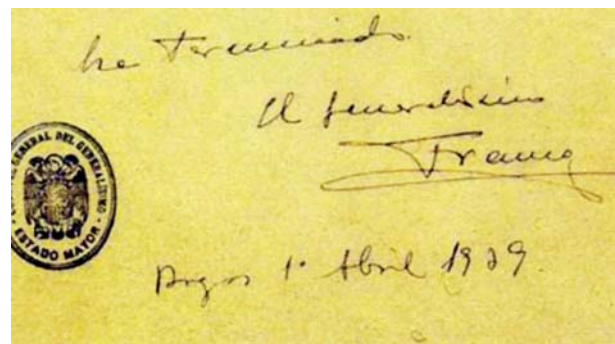 ha terminado.
El Generalísimo
Franco
GENERAL DEL GENERALISIMO
ESTADO MAYOR
Burgos 1º Abril 1939.